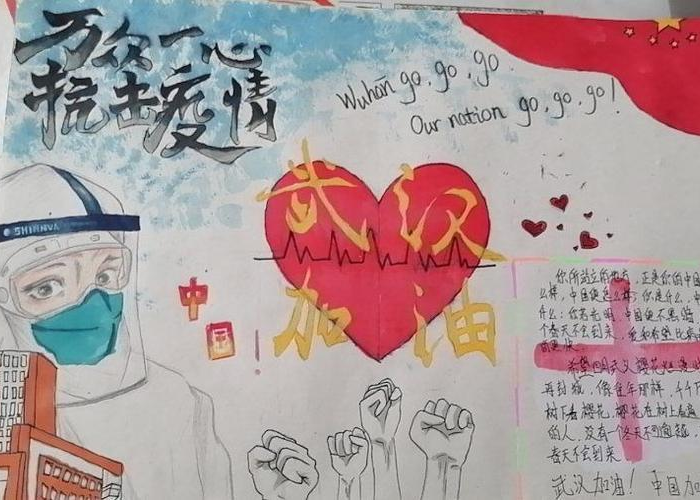 万众一心
抗击疫情
Wuhān go, go, go.
Our nation go, go, go!
SHINNVA
武汉
加油
中国!
你所站立的地方,正是你的中国
么样,中国便怎么样;你是什么,
什么;你有光明,中国便不黑暗
个春天不会到来,爱和希望比
希望四月武汉樱花
再封城,像往年那样,千千
树下看樱花,樱花在树上看
的人,没有一个冬天不可逾越,
春天不会到来
武汉加油!中国加